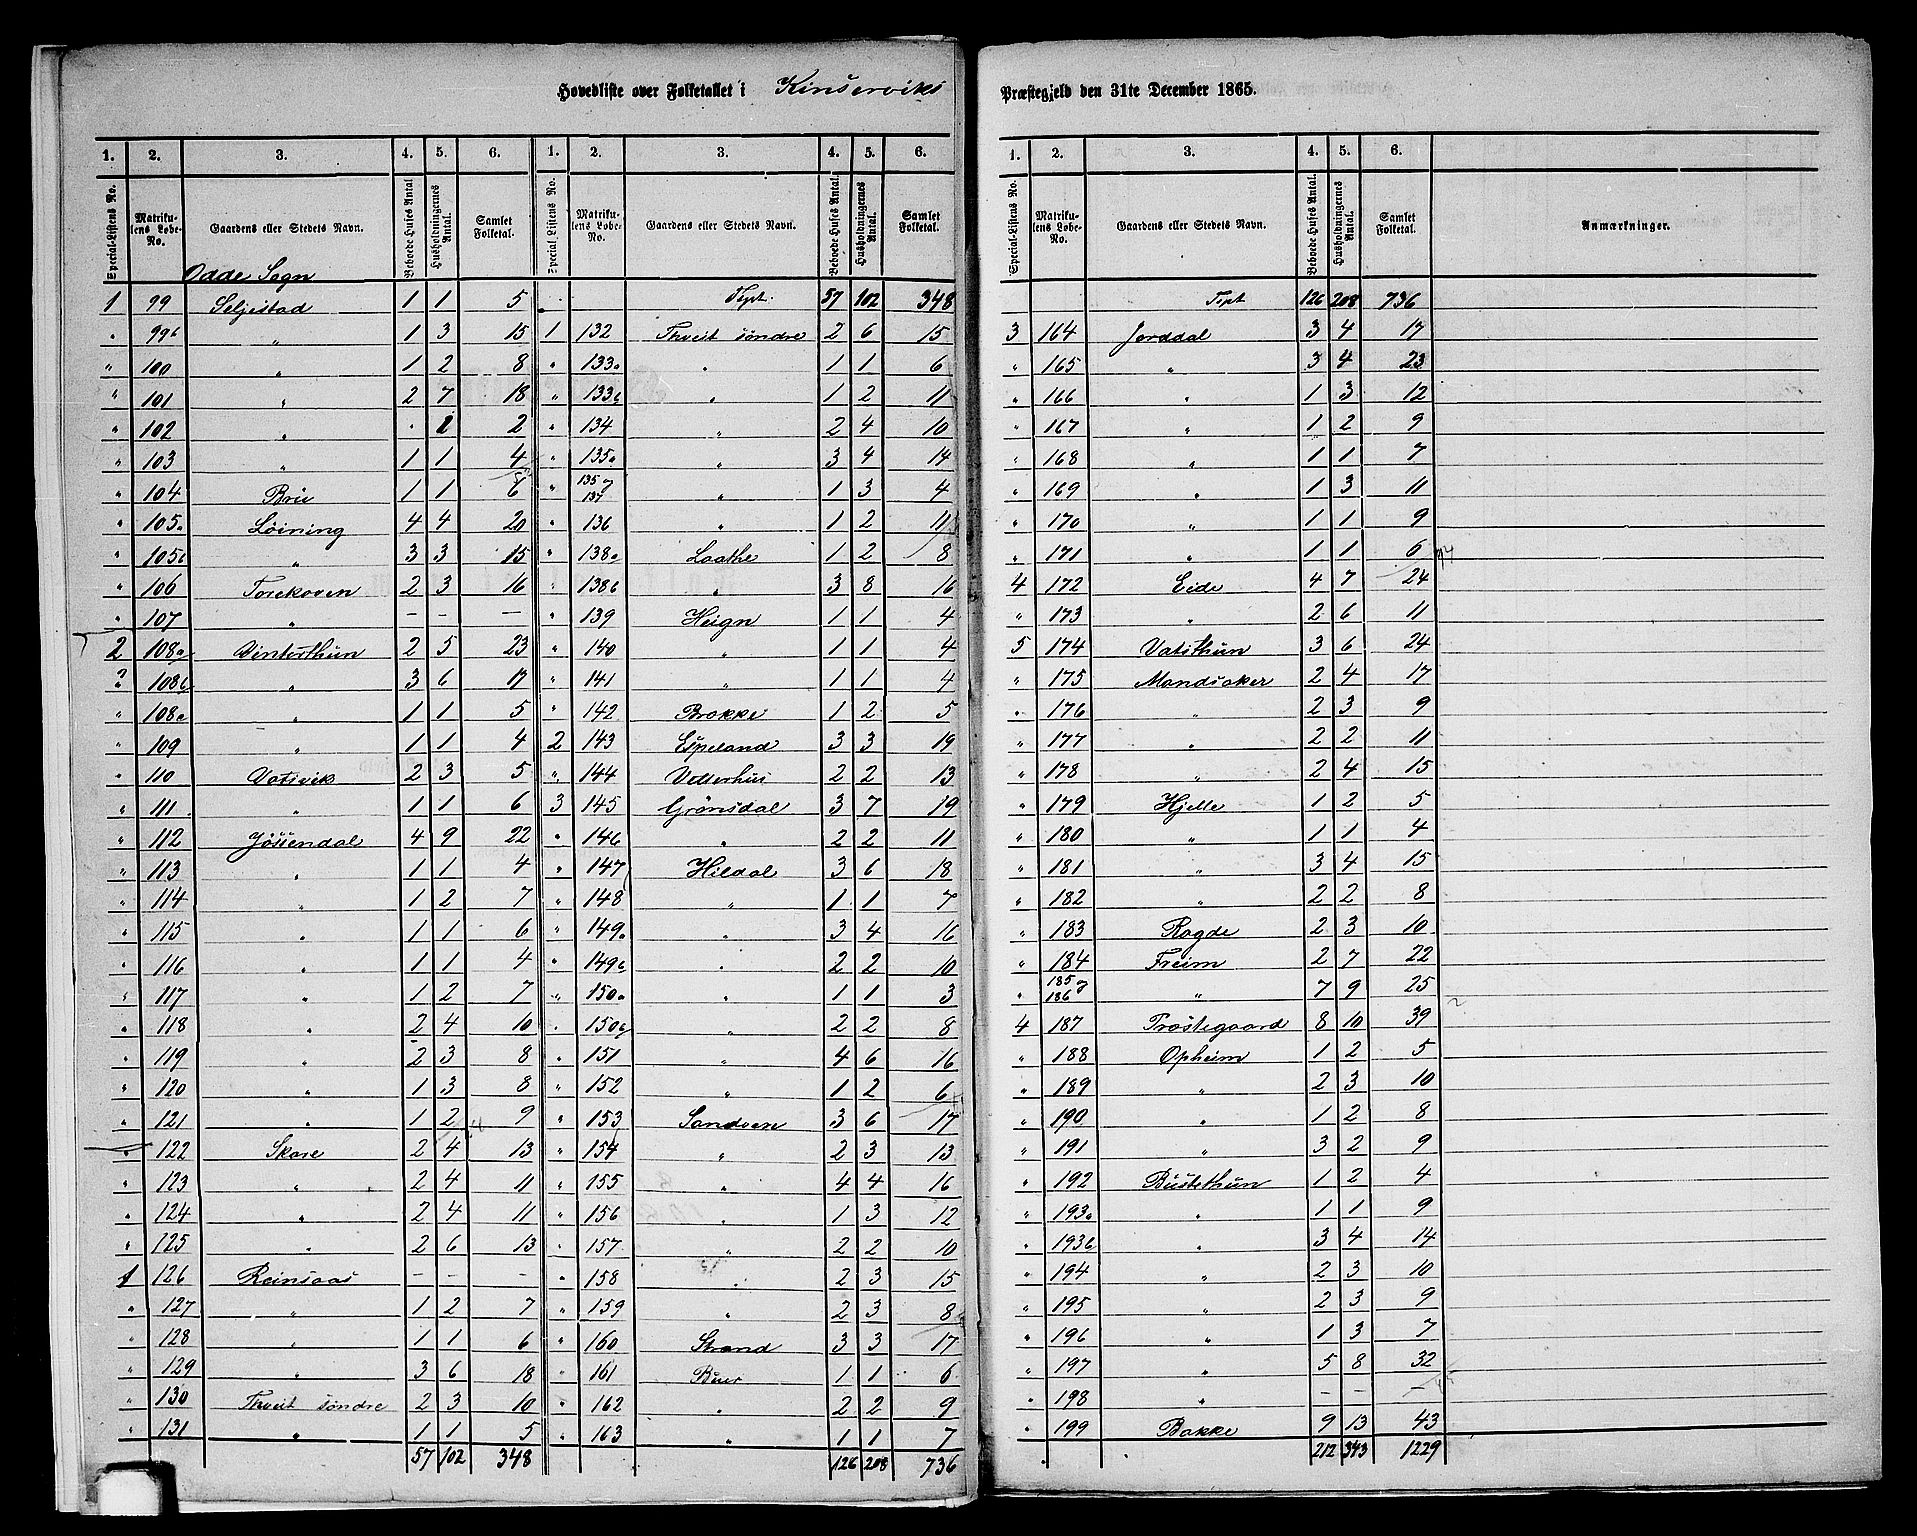 Hovedliste over Folketallet i Kinserviks Præstegjeld den 31te December 1865.
1. 2. 3. 4. 5. 6. 1. 2. 3. 4. 5. 6.
Special-Listens No. Matrikulens Løbe-No. Gaardens eller Stedets Navn. Beboede Huses Antal Husholdningernes Antal. Samlet Folketal. Special-Listens No. Matrikulens Løbe-No. Gaardens eller Stedets Navn. Beboede Huses Antal. Husholdningernes Antal. Samlet Folketal.
Odde Sogn
1 99 Seljestad 1 1 5 Tspt. 57 102 348
" 99b " 1 3 15 1 132 Thveit søndre 2 6 15
" 100 " 1 2 8 " 133a " 1 1 6
" 101 " 2 7 18 " 133b " 1 2 11
" 102 " . 1 2 " 134 " 2 4 10
" 103 " 1 1 4 " 135a " 3 4 14
" 104 Brie 1 1 6 " 135 137 " 1 3 4
" 105a Löining 4 4 20 " 136 " 1 2 11
" 105b " 3 3 15 " 138a Laathe 1 2 8
" 106 Torekoven 2 3 16 " 138b " 3 8 16
" 107 " – – – " 139 Heign 1 1 4
2 108a Vinterthun 2 5 23 " 140 " 1 1 4
" 108b " 3 6 17 " 141 " 1 1 4
" 108c " 1 1 5 " 142 Brokke 1 2 5
" 109 " 1 1 4 2 143 Espeland 3 3 19
" 110 Vatsvik 2 3 5 " 144 Vetterhus 2 2 13
" 111 " 1 1 6 3 145 Grønsdal 3 7 19
" 112 Jössendal 4 9 22 " 146 " 2 2 11
" 113 " 1 1 4 " 147 Hildal 3 6 18
" 114 " 1 2 7 " 148 " 1 1 7
" 115 " 1 1 6 " 149a " 3 4 16
" 116 " 1 1 4 " 149b " 2 2 10
" 117 " 1 2 7 " 150a " 1 1 3
" 118 " 2 4 10 " 150b " 2 2 8
" 119 " 2 3 8 " 151 " 4 6 16
" 120 " 1 3 8 " 152 " 1 2 6
" 121 " 1 2 9 " 153 Sandven 3 6 17
" 122 Skare 2 4 13 " 154 " 2 3 13
" 123 " 2 4 11 " 155 " 4 4 16
" 124 " 2 4 11 " 156 " 1 3 12
" 125 " 2 6 13 " 157 " 2 2 10
1 126 Reinsaas – – – " 158 " 2 3 15
" 127 " 1 2 7 " 159 " 2 3 8
" 128 " 1 1 6 " 160 Strand 3 3 17
" 129 " 3 6 18 " 161 Buer 1 1 6
" 130 Thveit søndre 2 3 10 " 162 " 2 2 9
" 131 " 1 1 5 " 163 " 1 1 7
57 102 348 126 208 736
1. 2. 3. 4. 5. 6.
Special-Listens No. Matrikulens Løbe-No. Gaardens eller Stedets Navn. Beboede Huses Antal. Husholdningernes Antal. Samlet Folketal. Anmærkninger.
Tspt 126 208 736
3 164 Jorddal 3 4 17
" 165 " 3 4 23
" 166 " 1 3 12
" 167 " 1 2 9
" 168 " 1 1 7
" 169 " 1 3 11
" 170 " 1 1 9
" 171 " 1 1 6
4 172 Eide 4 7 24
" 173 " 2 6 11
5 174 Vatsthun 3 6 24
" 175 Mandsaker 2 4 17
" 176 " 2 3 9
" 177 " 2 2 11
" 178 " 2 4 15
" 179 Hjelle 1 2 5
" 180 " 1 1 4
" 181 " 3 4 15
" 182 " 2 2 8
" 183 Ragde 2 3 10
" 184 Freim 2 7 22
" 185 186 " 7 9 25
4 187 Prøstegaard 8 10 39
" 188 Opheim 1 2 5
" 189 " 2 3 10
" 190 " 1 2 8
" 191 " 3 2 9
" 192 Bustethun 1 2 4
" 193a " 1 1 9
" 193b " 3 4 14
" 194 " 2 3 10
" 195 " 2 3 9
" 196 " 1 3 7
" 197 " 5 8 32
" 198 " – – –
" 199 Bakke 9 13 43
212 343 1229